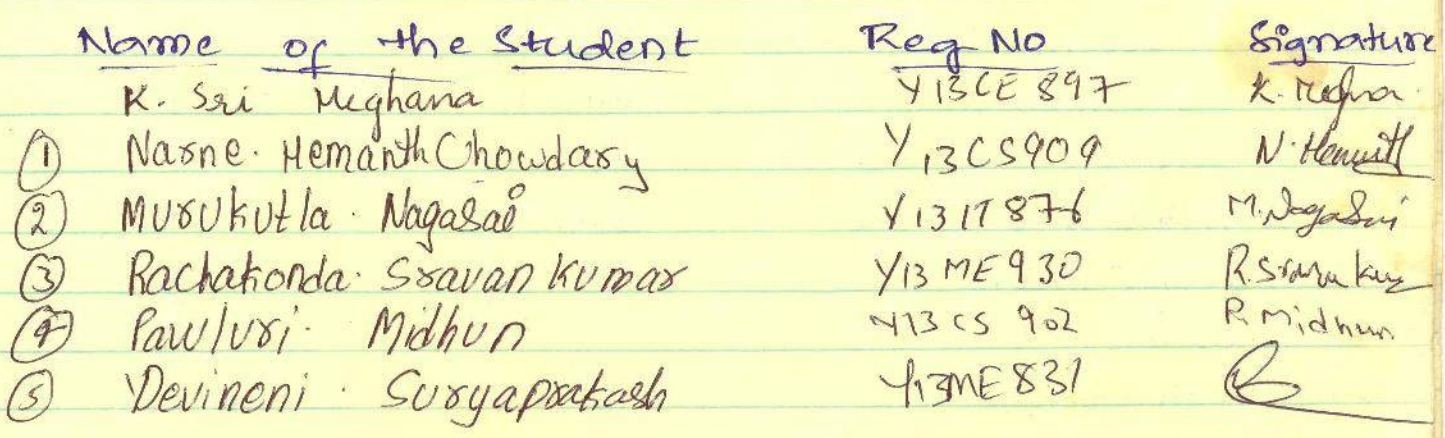 Name of the Student Reg No Signature
K. Sri Meghana Y13CE897 K. Meghna
① Narne. Hemanth Chowdary Y13CS909 N. Hemanth
② Murukutla. Nagasai Y13IT876 M. NagaSai
③ Rachakonda. Sravan Kumar Y13ME930 R. Sravan Kumar
④ Pawluri. Midhun Y13CS902 P. Midhun
⑤ Devineni. Suryaprakash Y13ME831